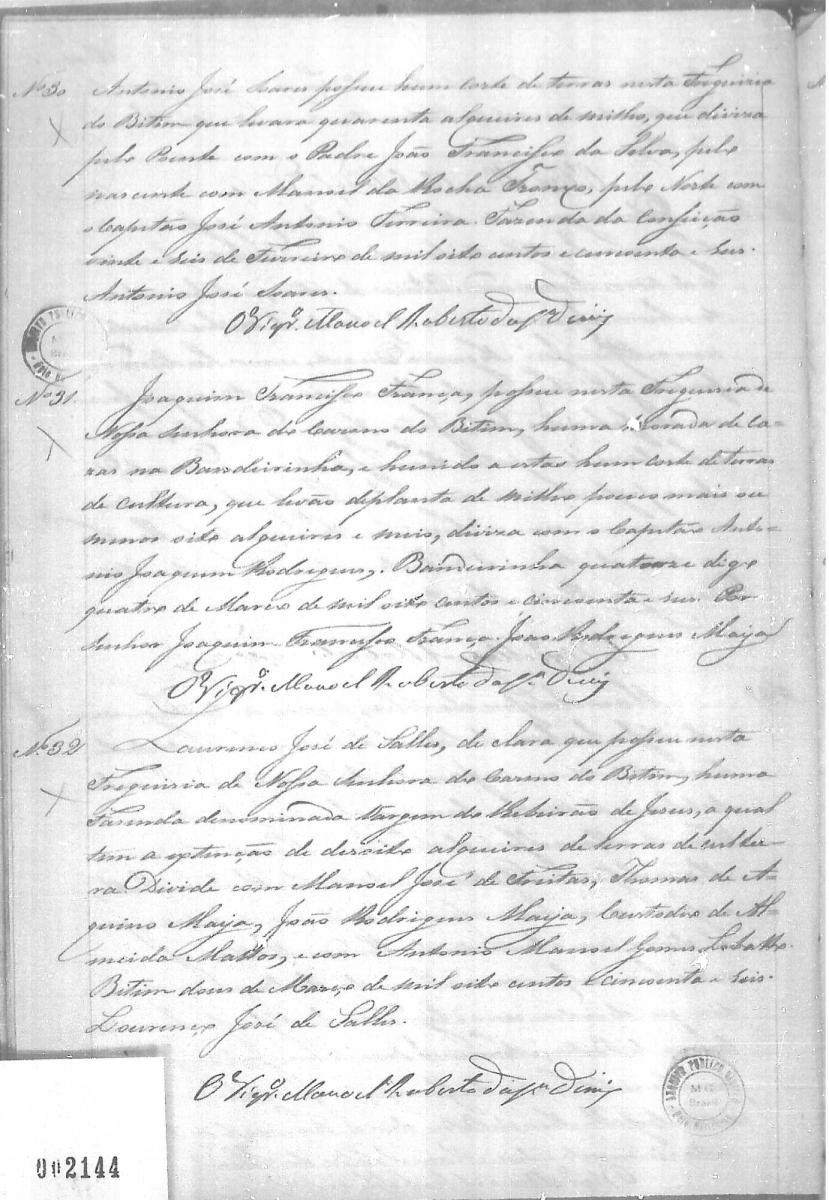 Nº 30 Antonio José Soares possue hum corte de terras nesta Freguizia
do Bitim que levara quarenta alqueires de milho, que diviza
pelo Poente com o Padre João Francisco da Silva, pelo
nascente com Manoel da Rocha França, pelo Norte com
o Capitão José Antonio Ferreira. Fazenda da
vinte e seis de Fevereiro de mil oito centos e cincoenta e seis.
Antonio José Soares.
O Vigrº. Manoel Roberto da Sª Diniz
Nº 31 Joaquim Francisco França, possue nesta Freguezia de
Nossa Senhora do Carmo do Bitim, huma morada de Ca-
zas na Bandeirinha, e hunido a estas hum corte de terras
de cultura, que levão de planta de milho pouco mais ou
menos oito alqueires e meio, diviza com o Capitão Anto-
nio Joaquim Rodrigues. Bandeirinha quatorze digo
quatro de Março de mil oito centos e cincoenta e seis. Por
Senhor Joaquim Francisco França. João Rodrigues Maija
O Vigrº. Manoel Roberto da Sª Diniz
Nº 32 Lourenço José de Salles, de clara que possue nesta
Freguizia de Nossa Senhora do Carmo do Bitim, huma
Fazenda denominada Vargem do Ribeirão de Jesus, a qual
tem a extenção de dezoito alqueires de terras de cultu-
ra Divide com Manoel José de Freitas, Thomas de A-
quino Maija, João Rodrigues Maija, Custodio de Al-
meida Mattos, e com Antonio Manoel Gomes Lobatto.
Bitim dous de Março de mil oito centos e cincoenta e seis.
Lourenço José de Salles.
O Vigrº. Manoel Roberto da Sª Diniz
ARQUIVO PUBLICO
M G
Brasil
002144